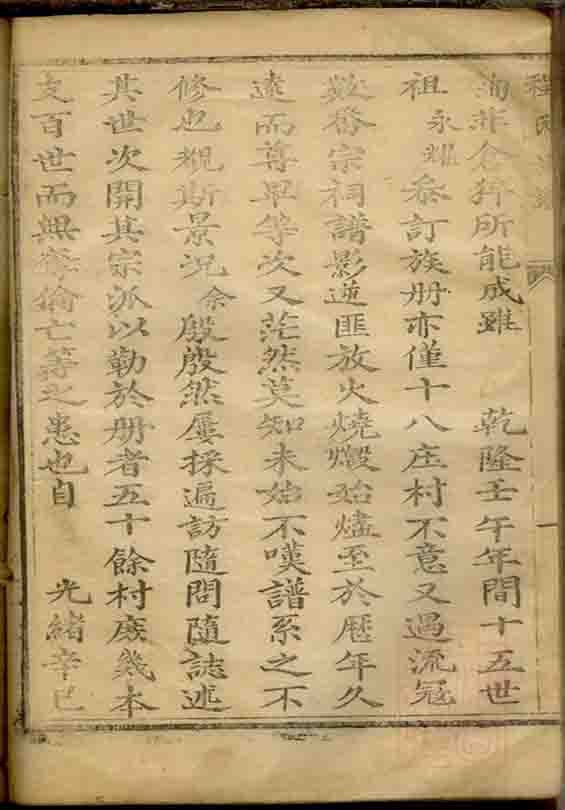 程氏
尚非倉猝所能成雖 乾隆壬午年間十五世
祖永耀叅訂族册亦僅十八庄村不意又過流冦
數番宗祠譜影逆匪放火燒燬始燼至於厯年久
遠而尊卑等次又茫然莫知未始不嘆譜系之不
修也覩斯景况余殷殷然屢採遍訪隨問隨誌述
其世次開其宗派以勒於册者五十餘村庶幾本
支百世而興 倫亡等之患也自 光緒辛巳
一